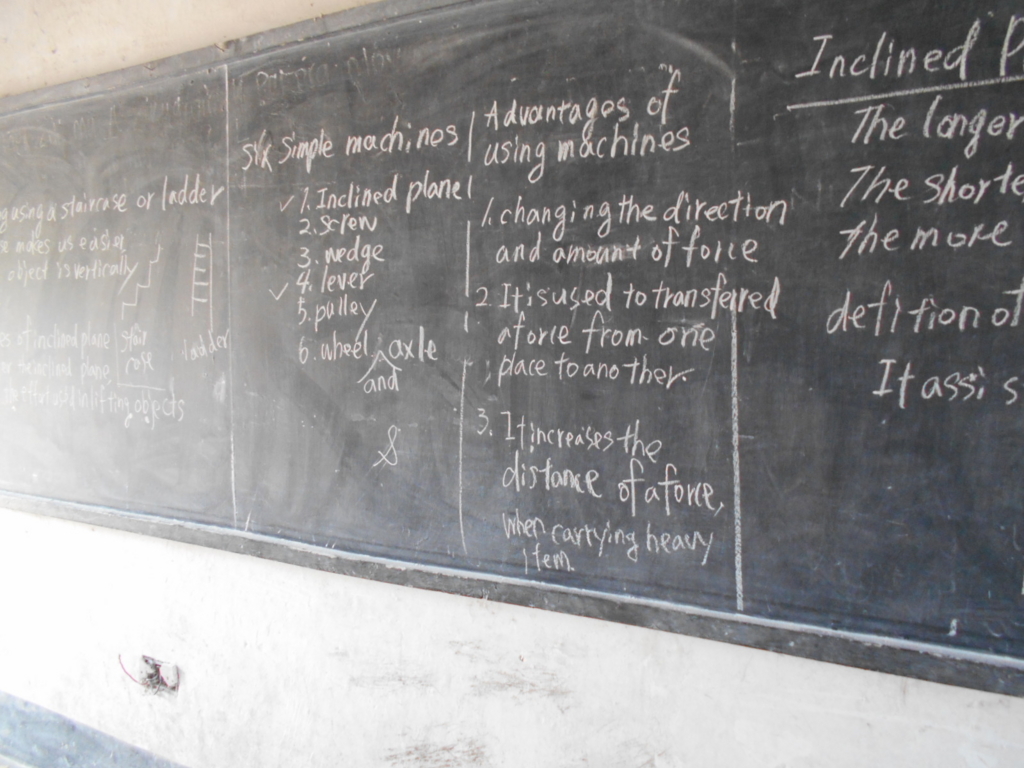 using a staircase or ladder
makes us easier
object is vertically
of inclined plane
stair
case
ladder
inclined plane
in lifting objects
Six Simple machines
✓ 1. Inclined plane
2. screw
3. wedge
✓ 4. lever
5. pulley
6. wheel axle
and
Advantages of
using machines
1. changing the direction
and amount of force
2. It is used to transferred
a force from one
place to another.
3. It increases the
distance of a force,
when carrying heavy
item.
Inclined P
The longer
The shorte
the more
defition of
It assis